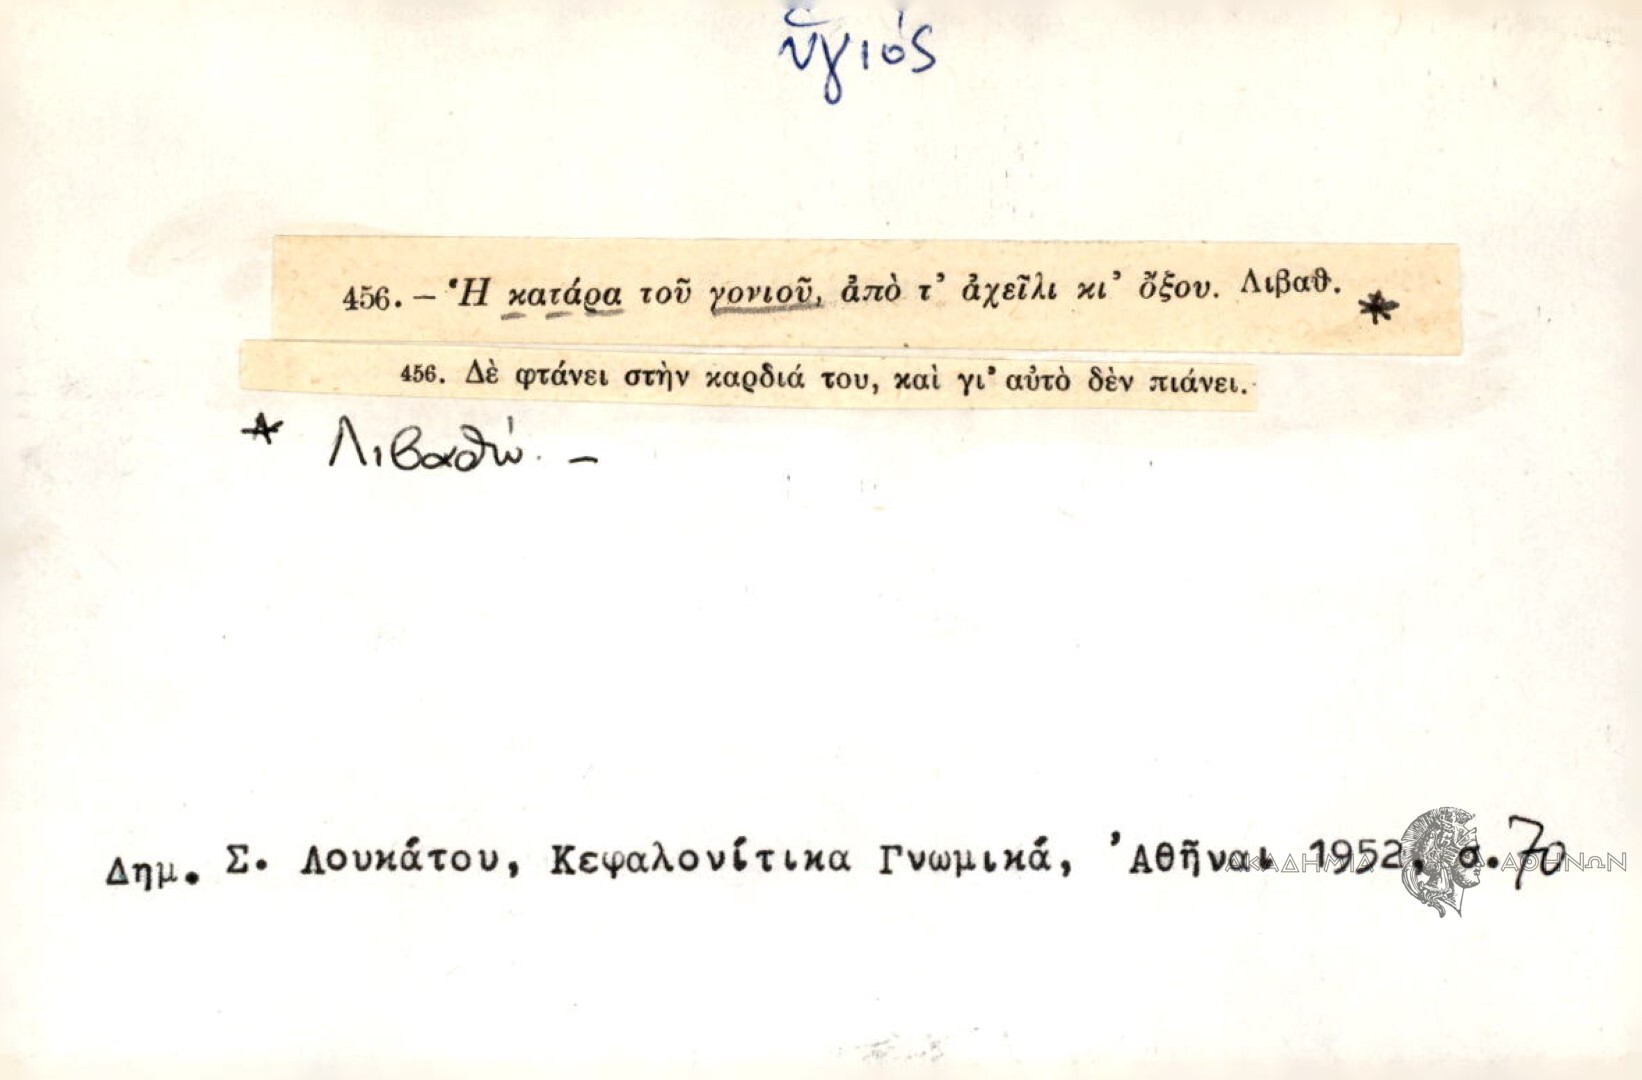 ὑγιός
456. – Ἡ κατάρα τοῦ γονιοῦ, ἀπὸ τ' ἀχεῖλι κι' ὄξου. Λιβαθ. *
456. Δὲ φτάνει στὴν καρδιά του, καὶ γι' αὐτὸ δὲν πιάνει.
* Λιβαθώ. –
Δημ. Σ. Λουκάτου, Κεφαλονίτικα Γνωμικά, 'Αθῆναι 1952, σ. 70
ΑΚΑΔΗΜΙΑ ΑΘΗΝΩΝ